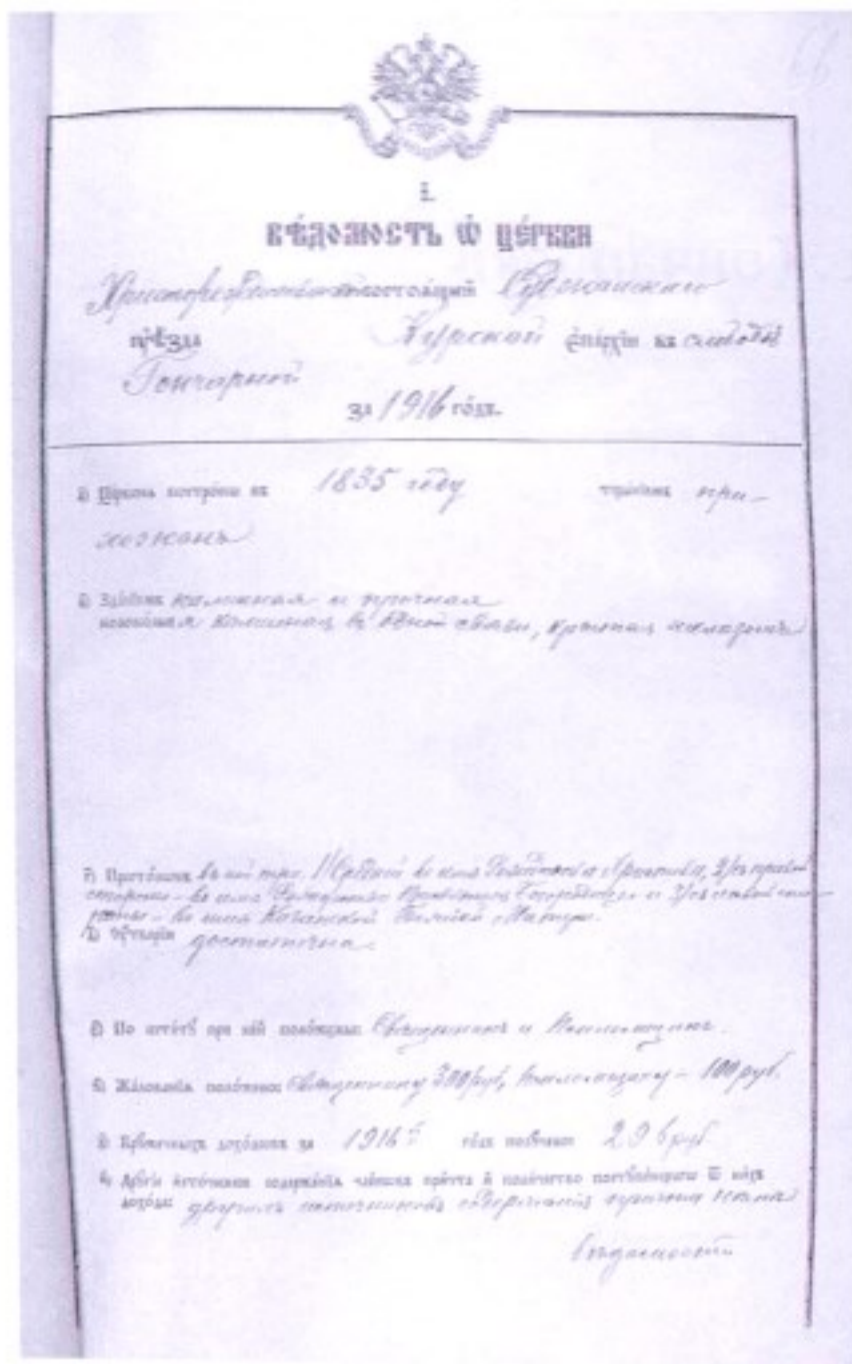 66
І.
ВѢДОМОСТЬ Ѡ ЦЕРКВИ
состоящей Суджанскаго
уѣзда Курской епархіи въ слободѣ
Гончарной
за 1916 годъ.
Церковь построена въ 1835 году тщаніемъ при-
хожанъ
Зданіемъ каменная и прочная
каменная въ одной связи, крытая желѣзомъ
Престоловъ въ ней три. 1) Средній во имя Рождества Христова, 2) съ правой
стороны - во имя Рождества Пресвятыя Богородицы и 3) съ лѣвой сто-
роны - во имя Казанской Божіей Матери.
Утварію достаточна
По штату при ней положены: Священникъ и Псаломщикъ.
Жалованья положено: Священнику 300 руб, Псаломщику - 100 руб.
Кружечныхъ доходовъ за 1916 й годъ получено 296 руб.
Другіе источники содержанія членовъ причта и количество поступающаго Ѿ нихъ
дохода: другихъ источниковъ содержанія причта нѣтъ